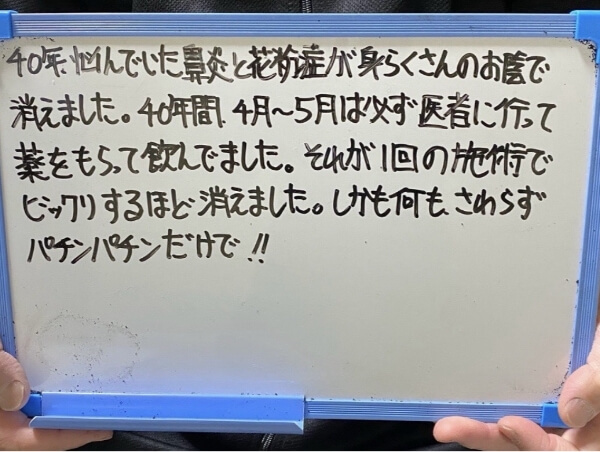 40年、悩んでいた鼻炎と花粉症が身らくさんのお陰で
消えました。40年間、4月〜5月は必ず医者に行って
薬をもらって飲んでました。それが1回の施術で
ビックリするほど消えました。しかも何も、さわらず
パチンパチンだけで!!